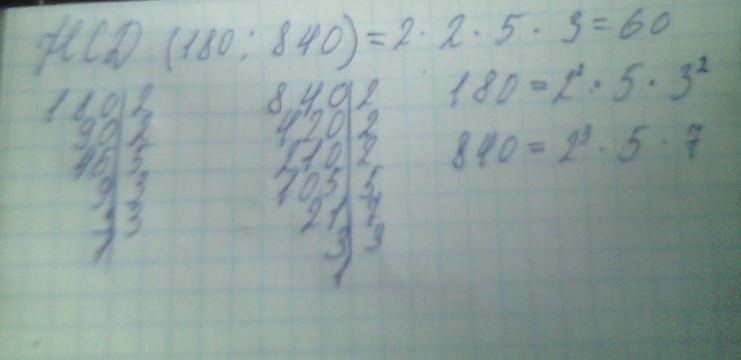 НСD (180; 840) = 2 · 2 · 5 · 3 = 60
180 | 2
90 | 2
45 | 5
9 | 3
3 | 3
1
840 | 2
420 | 2
210 | 2
105 | 5
21 | 7
3 | 3
1
180 = 2² · 5 · 3²
840 = 2³ · 5 · 7